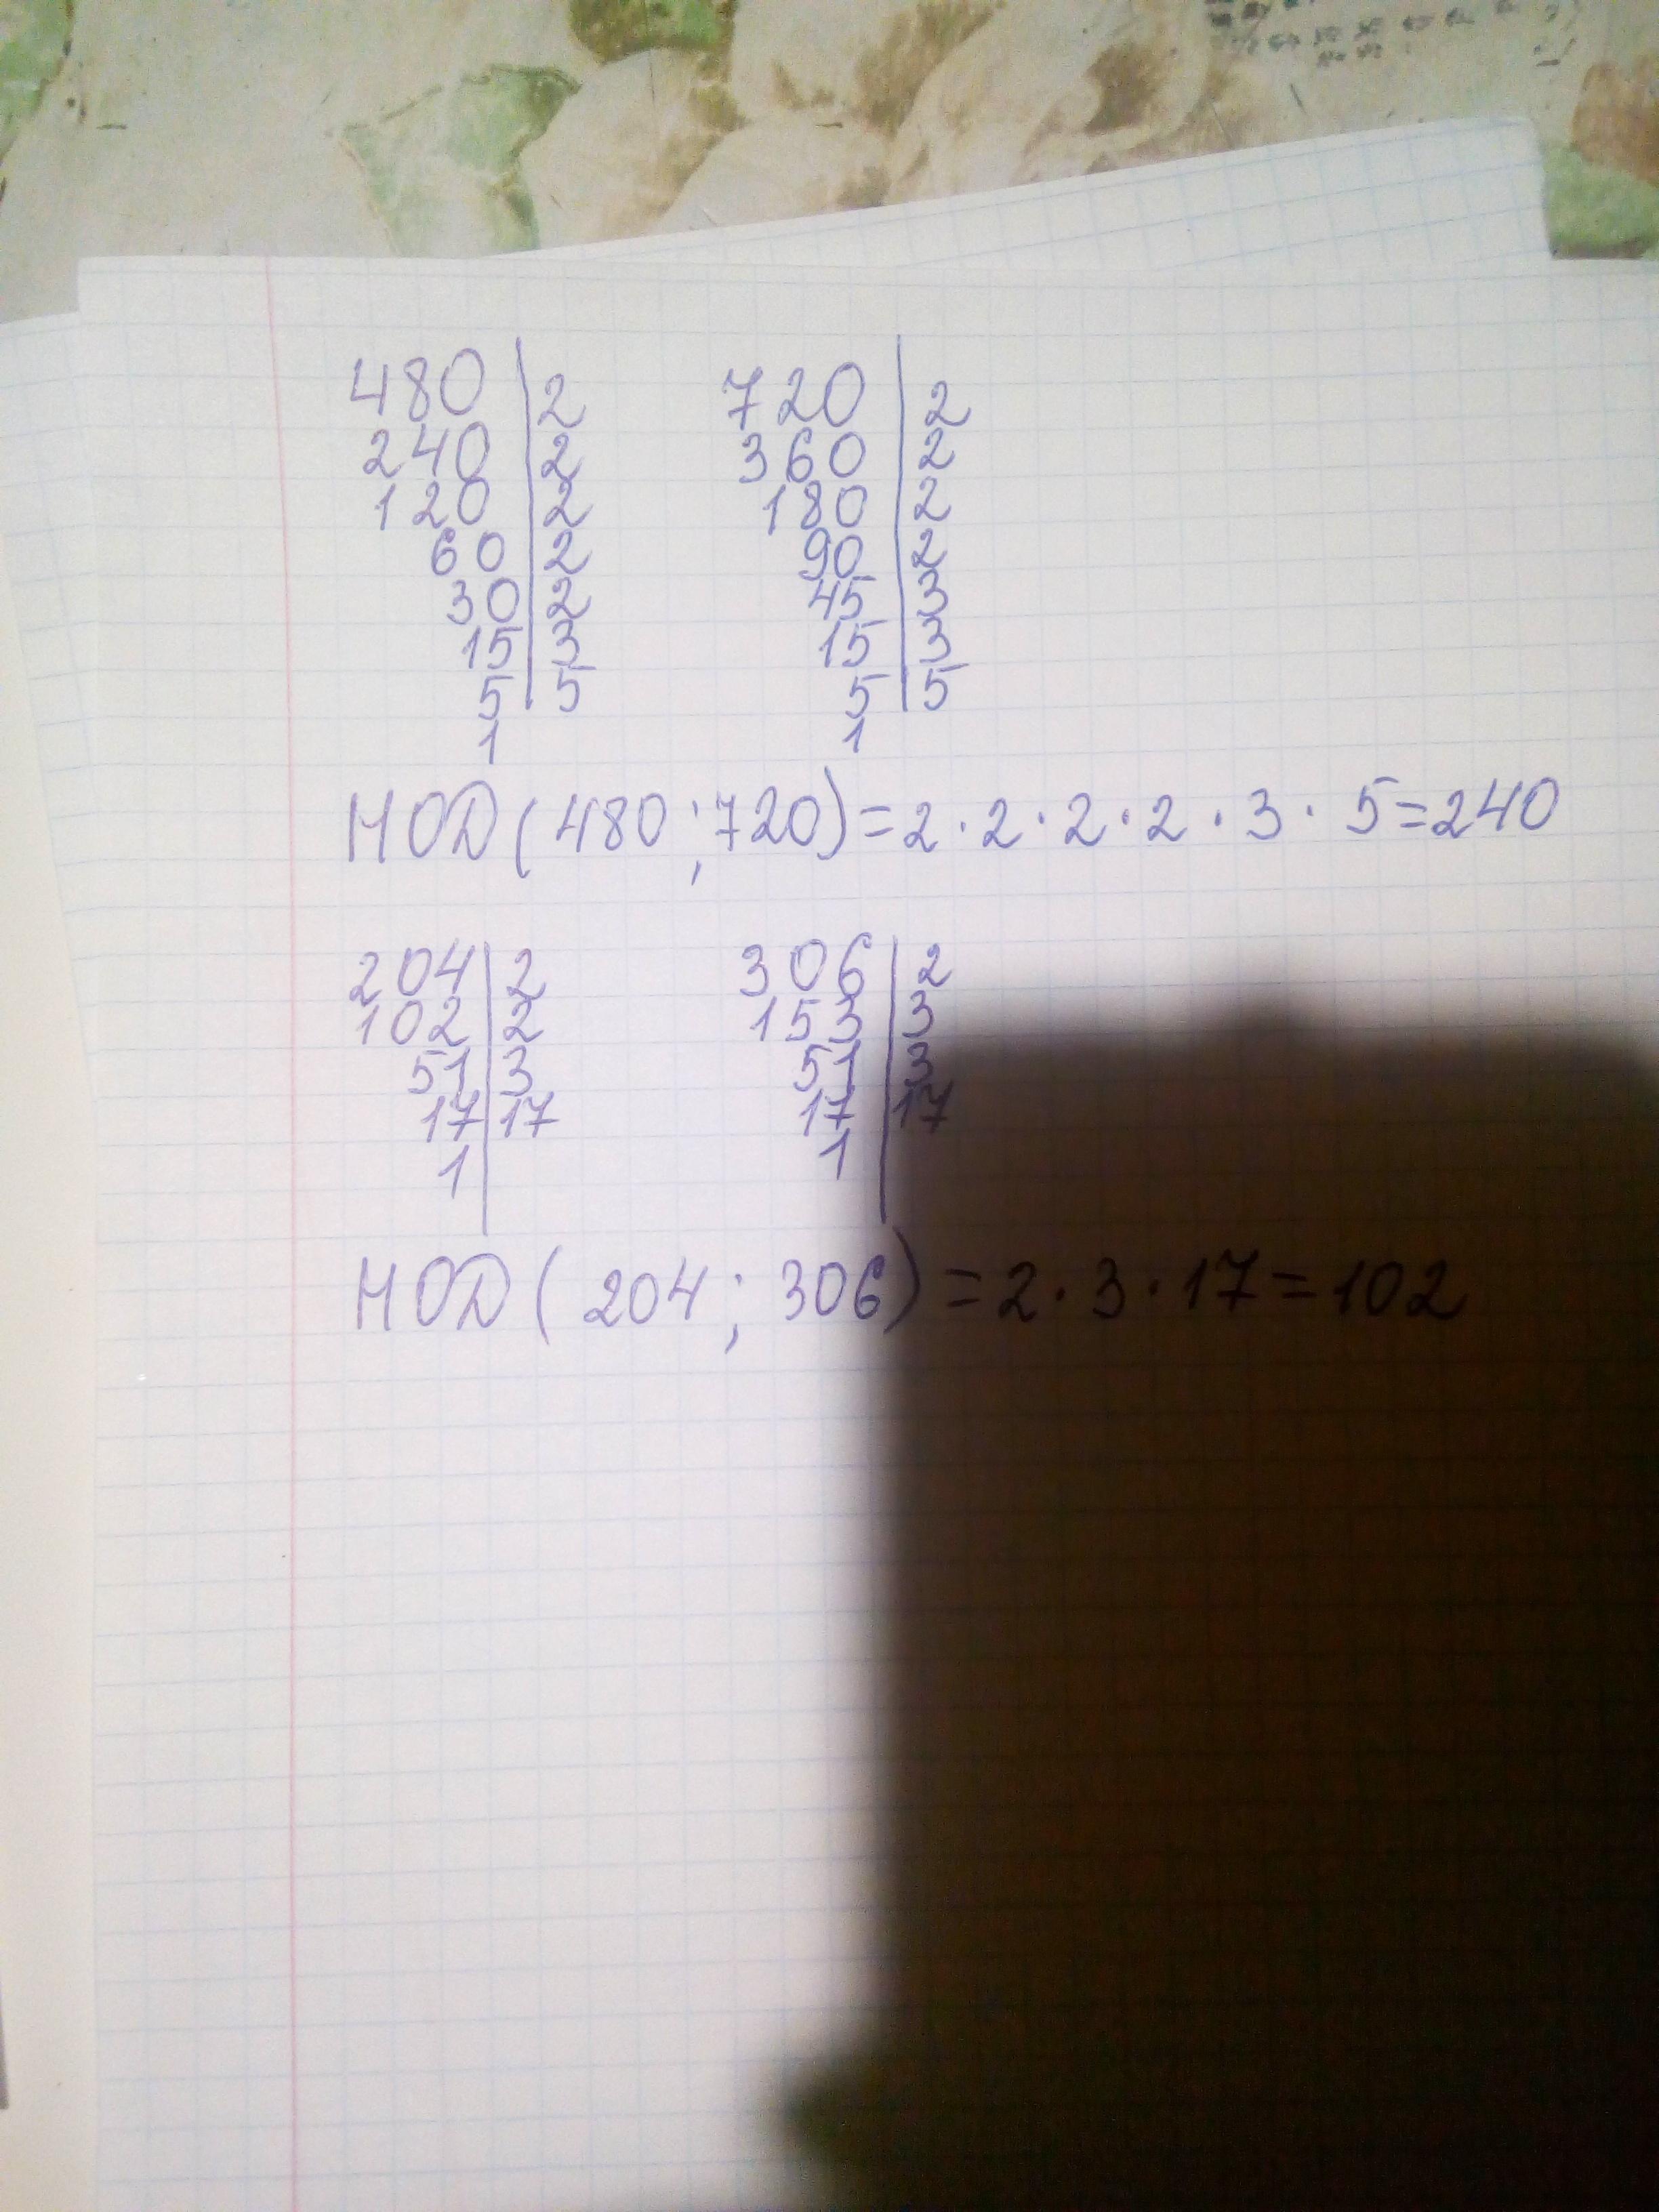 480 | 2 720 | 2
240 | 2 360 | 2
120 | 2 180 | 2
60 | 2 90 | 2
30 | 2 45 | 3
15 | 3 15 | 3
5 | 5 5 | 5
1 1
НОД(480;720)=2·2·2·2·3·5=240
204 | 2 306 | 2
102 | 2 153 | 3
51 | 3 51 | 3
17 | 17 17 | 17
1 | 1 |
НОД(204;306)=2·3·17=102